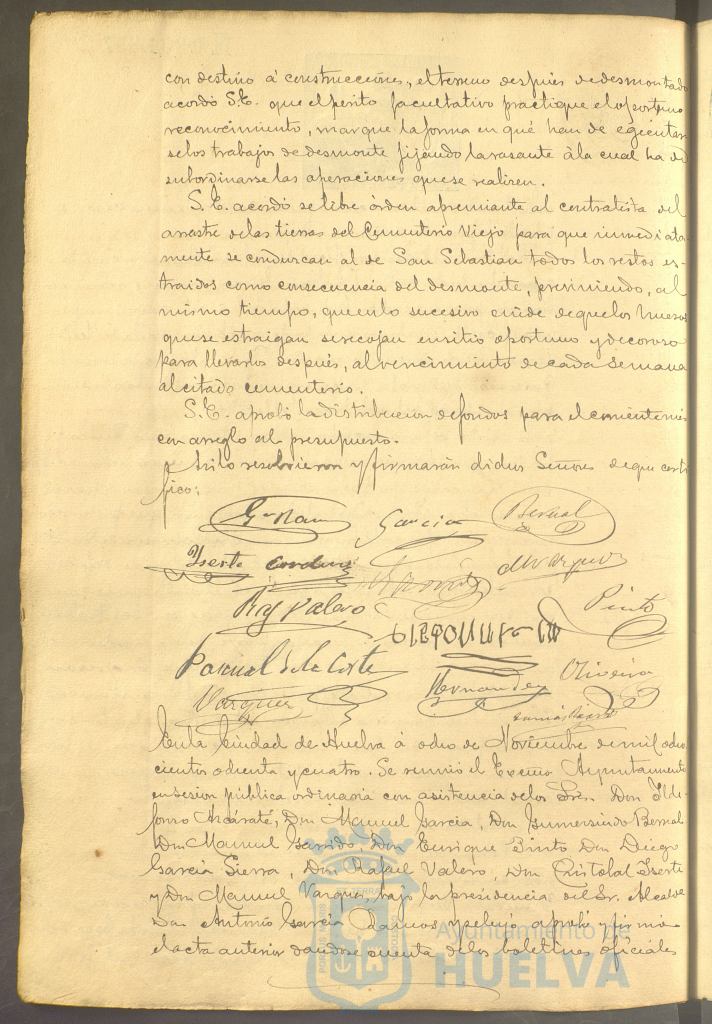 con destino á construcciones, el terreno despues de desmontado
acordó S.E. que el perito facultativo practique el oportuno
reconocimiento, marque la forma en qué han de egecutar
se los trabajos de desmonte fijando la rasante á la cual ha de
subordinarse las operaciones que se realicen.
S. E. acordó se libre órden apremiante al contratista del
arrastre de las tierras del Cementerio Viejo para que inmediata
mente se conduzcan al de San Sebastian todos los restos es-
traidos como consecuencia del desmonte, previniendo, al
mismo tiempo, que en lo sucesivo cuide de que los huesos
que se estraigan se recojan en sitio oportuno y decoroso
para llevarlos después, al vencimiento de cada semana
al citado cementerio.
S. E. aprobó la distribucion de fondos para el corriente mes
con arreglo al presupuesto.
Asi lo resolvieron y firmarán dichos Señores de que certi
fico:
Garcia Bernal
Yserte
Vazquez
Raf Valero
Pinto
Pascual de la Corte
Hernandez Oliveira
Vazquez
En la Ciudad de Huelva á ocho de Noviembre de mil ocho
cientos ochenta y cuatro. Se reunió el Excmo Ayuntamiento
en sesion pública ordinaria con asistencia de los Sres. Don Ilde
fonso Alcárate, Don Manuel Garcia, Don Gumersindo Bernal
Don Manuel Garrido, Don Enrique Pinto Don Diego
Garcia Sierra, Don Rafael Valero, Don Cristobal Yserte
y Don Manuel Vazquez, bajo la presidencia del Sr. Alcalde
Don Antonio Garcia Ramos y se leyó, aprobó y firmó
el acta anterior dandose cuenta de los boletines oficiales
Ayuntamiento de
HUELVA